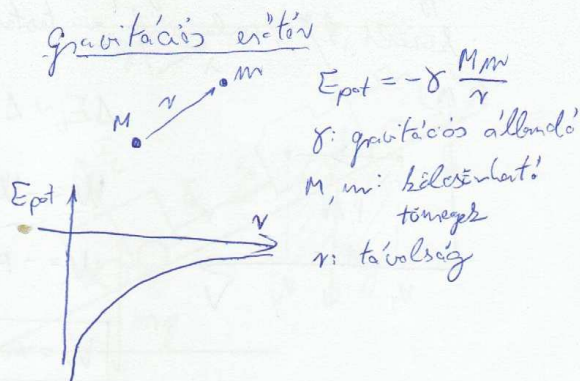 Gravitációs erőtér
M
r
m
E_pot = -γ Mm/r
γ: gravitációs állandó
M, m: kölcsönható
tömegek
r: távolság
E_pot
r